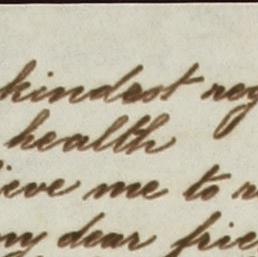 kindest reg
health
ieve me to r
my dear frie